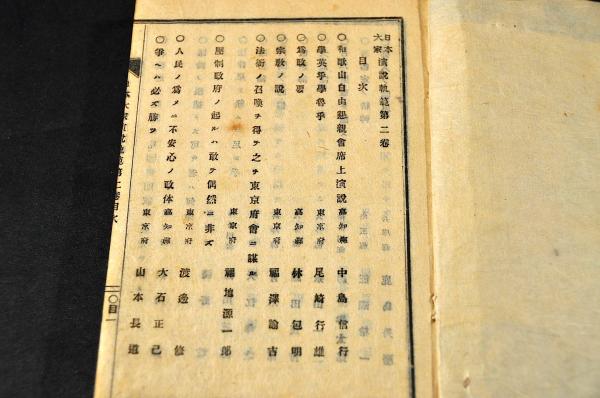 日本大家演説軌範第二卷
目次
○和歌山自由懇親會席上演説 高知縣 中島信行
○學英乎學魯乎 東京府 尾崎行雄
○爲政ノ要 高知縣 林包明
○宗敎ノ説 東京府 福澤諭吉
○法術ノ召喚ヲ得テ之ヲ東京府會ニ謀ル
東京府 福地源一郎
○壓制政府ノ起ルハ敢テ偶然ニ非ズ
東京府 渡邊修
○人民ノ爲メニ不安心ノ政体 高知縣 大石正己
○爭ヘハ必ズ勝ツ 東京府 山本長道